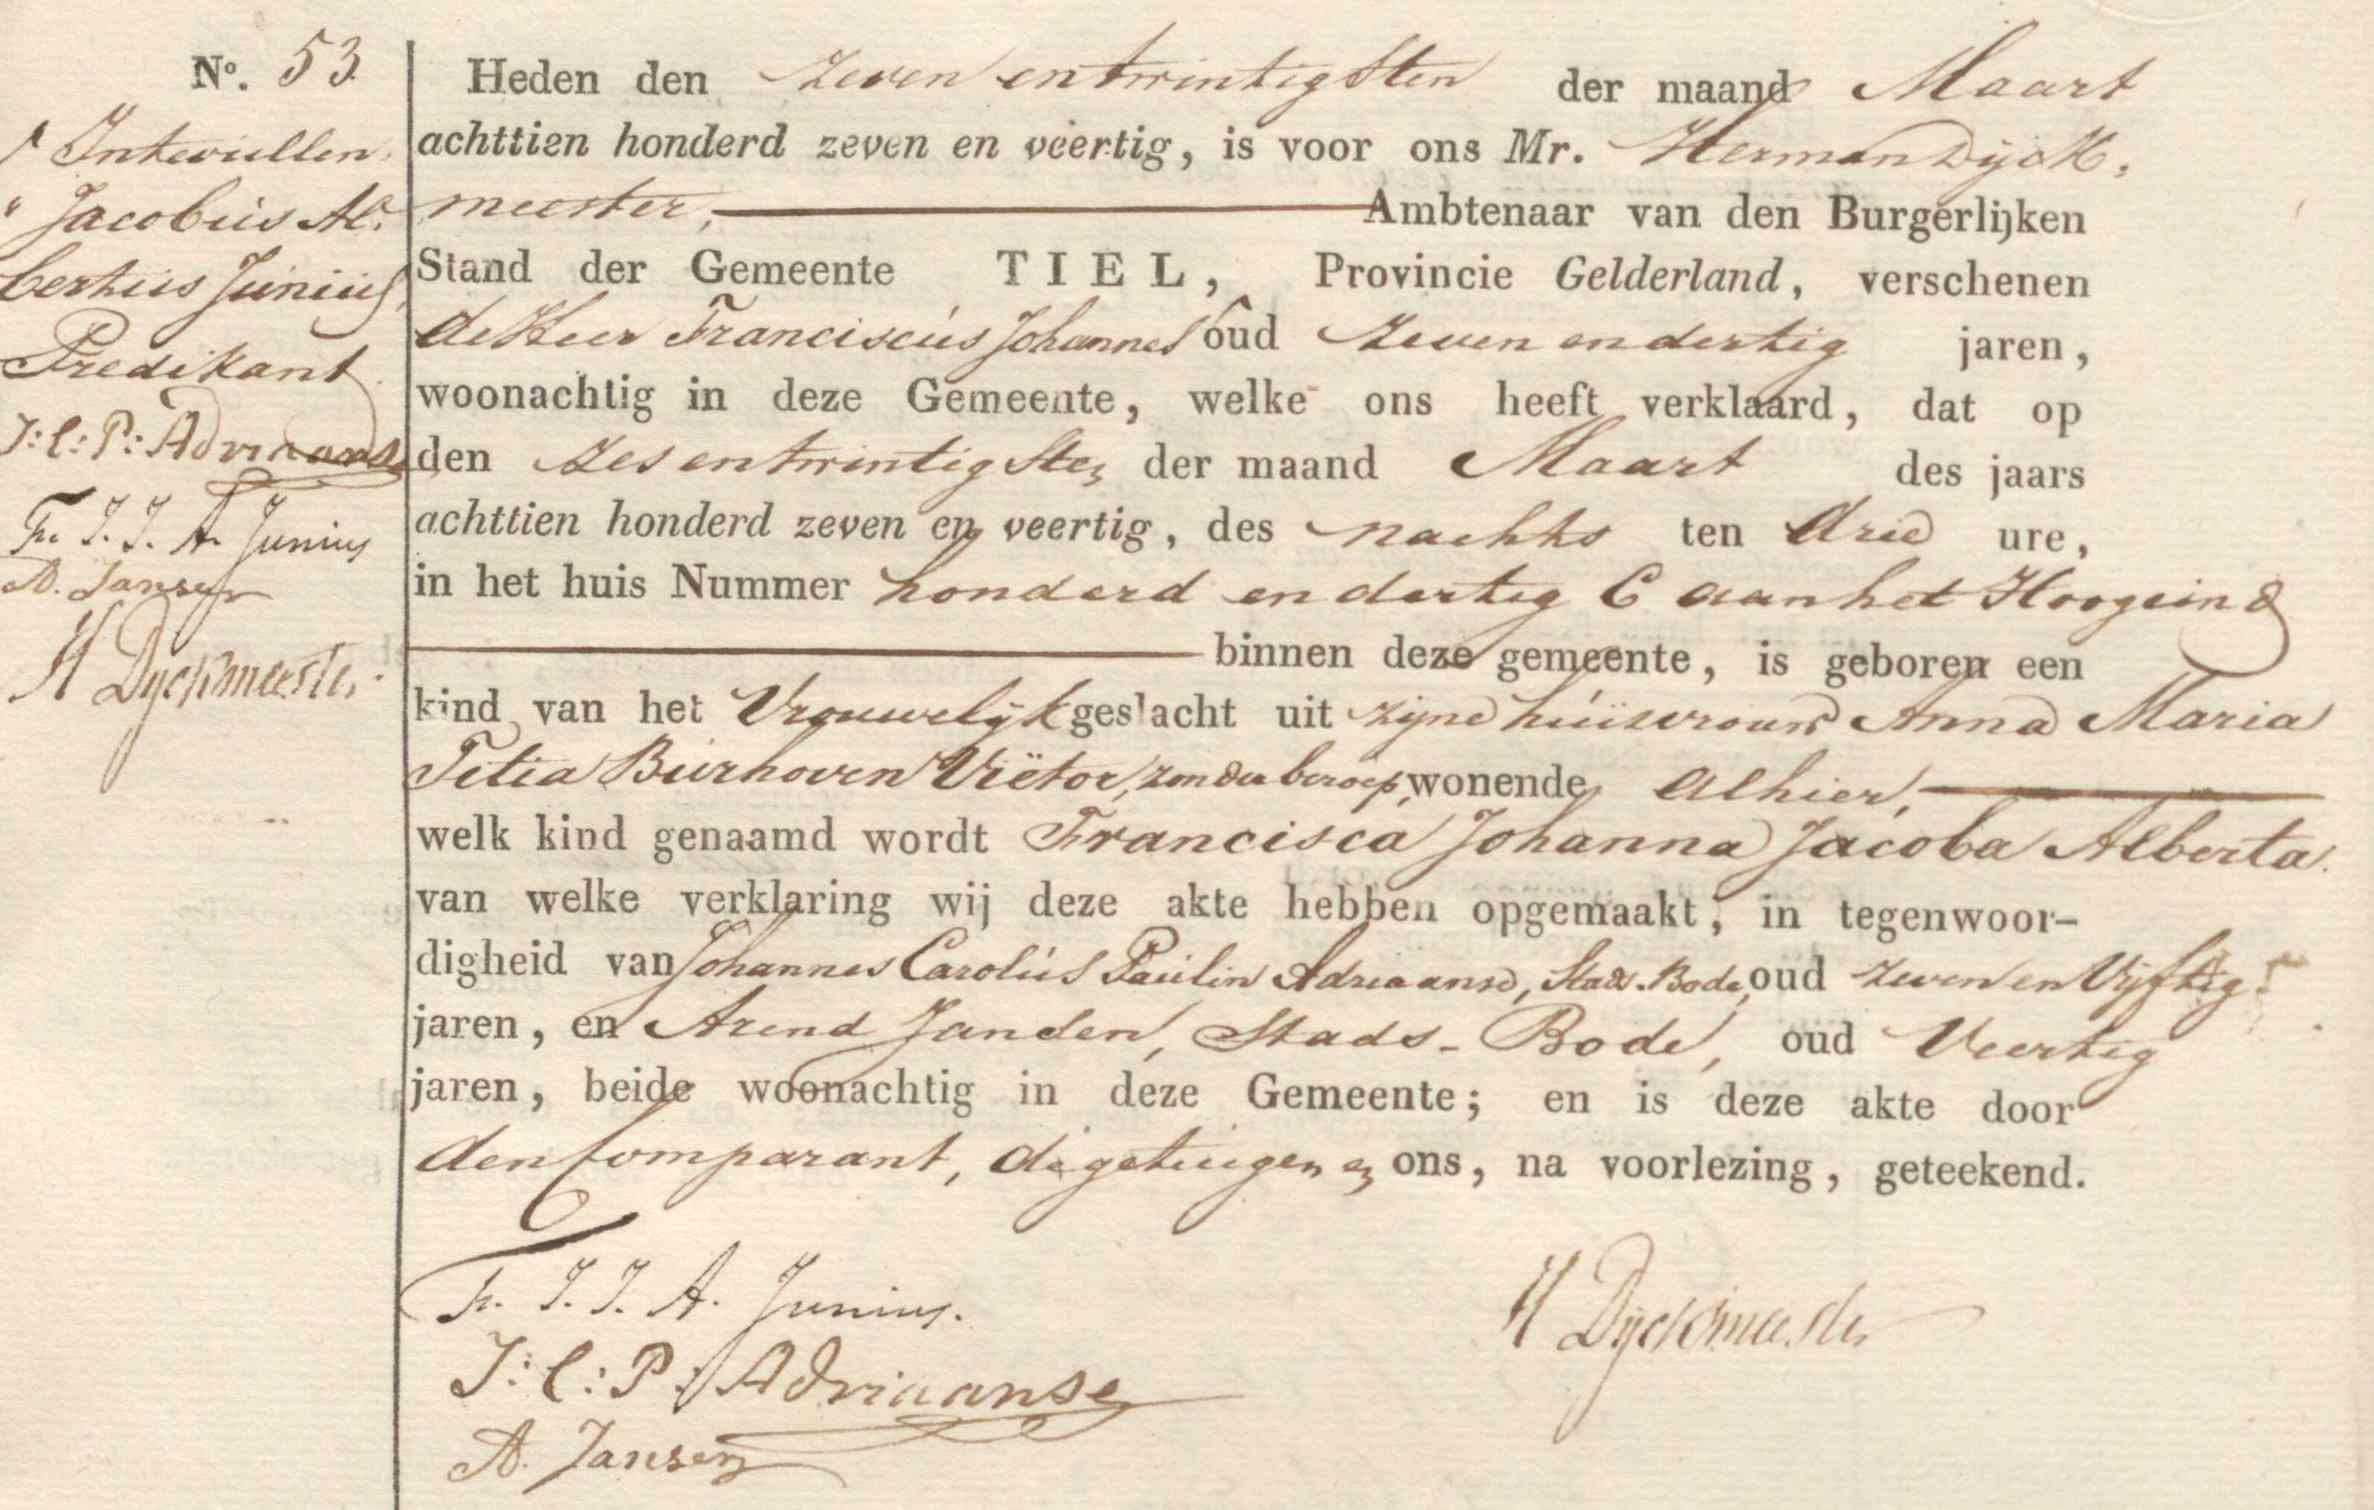 No. 53
Intevullen
"Jacobus Al-
bertus Junius,
Predikant
J: C: P: Adriaanse
Fr. J. J. A. Junius
A. Jansen
H Dyckmeester
Heden den zeven entwintigsten der maand Maart
achttien honderd zeven en veertig, is voor ons Mr. Herman Dijck-
meester, Ambtenaar van den Burgerlijken
Stand der Gemeente TIEL, Provincie Gelderland, verschenen
de Heer Franciscus Johannes oud zeven en dertig jaren,
woonachtig in deze Gemeente, welke ons heeft verklaard, dat op
den zes entwintigsten der maand Maart des jaars
achttien honderd zeven en veertig, des nachts ten drie ure,
in het huis Nummer honderd en dertig C aan het Hoogeind
binnen deze gemeente, is geboren een
kind van het Vrouwelijk geslacht uit zijne huisvrouw Anna Maria
Tetia Burhoven Viëtor, zonder beroep, wonende alhier,
welk kind genaamd wordt Francisca Johanna Jacoba Alberta.
van welke verklaring wij deze akte hebben opgemaakt, in tegenwoor-
digheid van Johannes Carolus Paulin Adriaanse, Stads-Bode, oud zeven en Vijftig
jaren, en Arend Jansen, Stads-Bode, oud Veertig
jaren, beide woonachtig in deze Gemeente; en is deze akte door
den Comparant, de getuigen en ons, na voorlezing, geteekend.
Fr. J. J. A. Junius.
H Dyckmeester
J: C: P: Adriaanse
A. Jansen